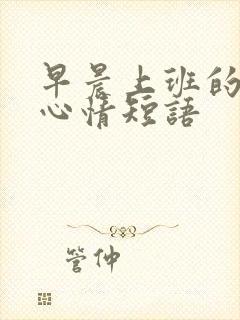 早晨上班的
心情短語
管仲